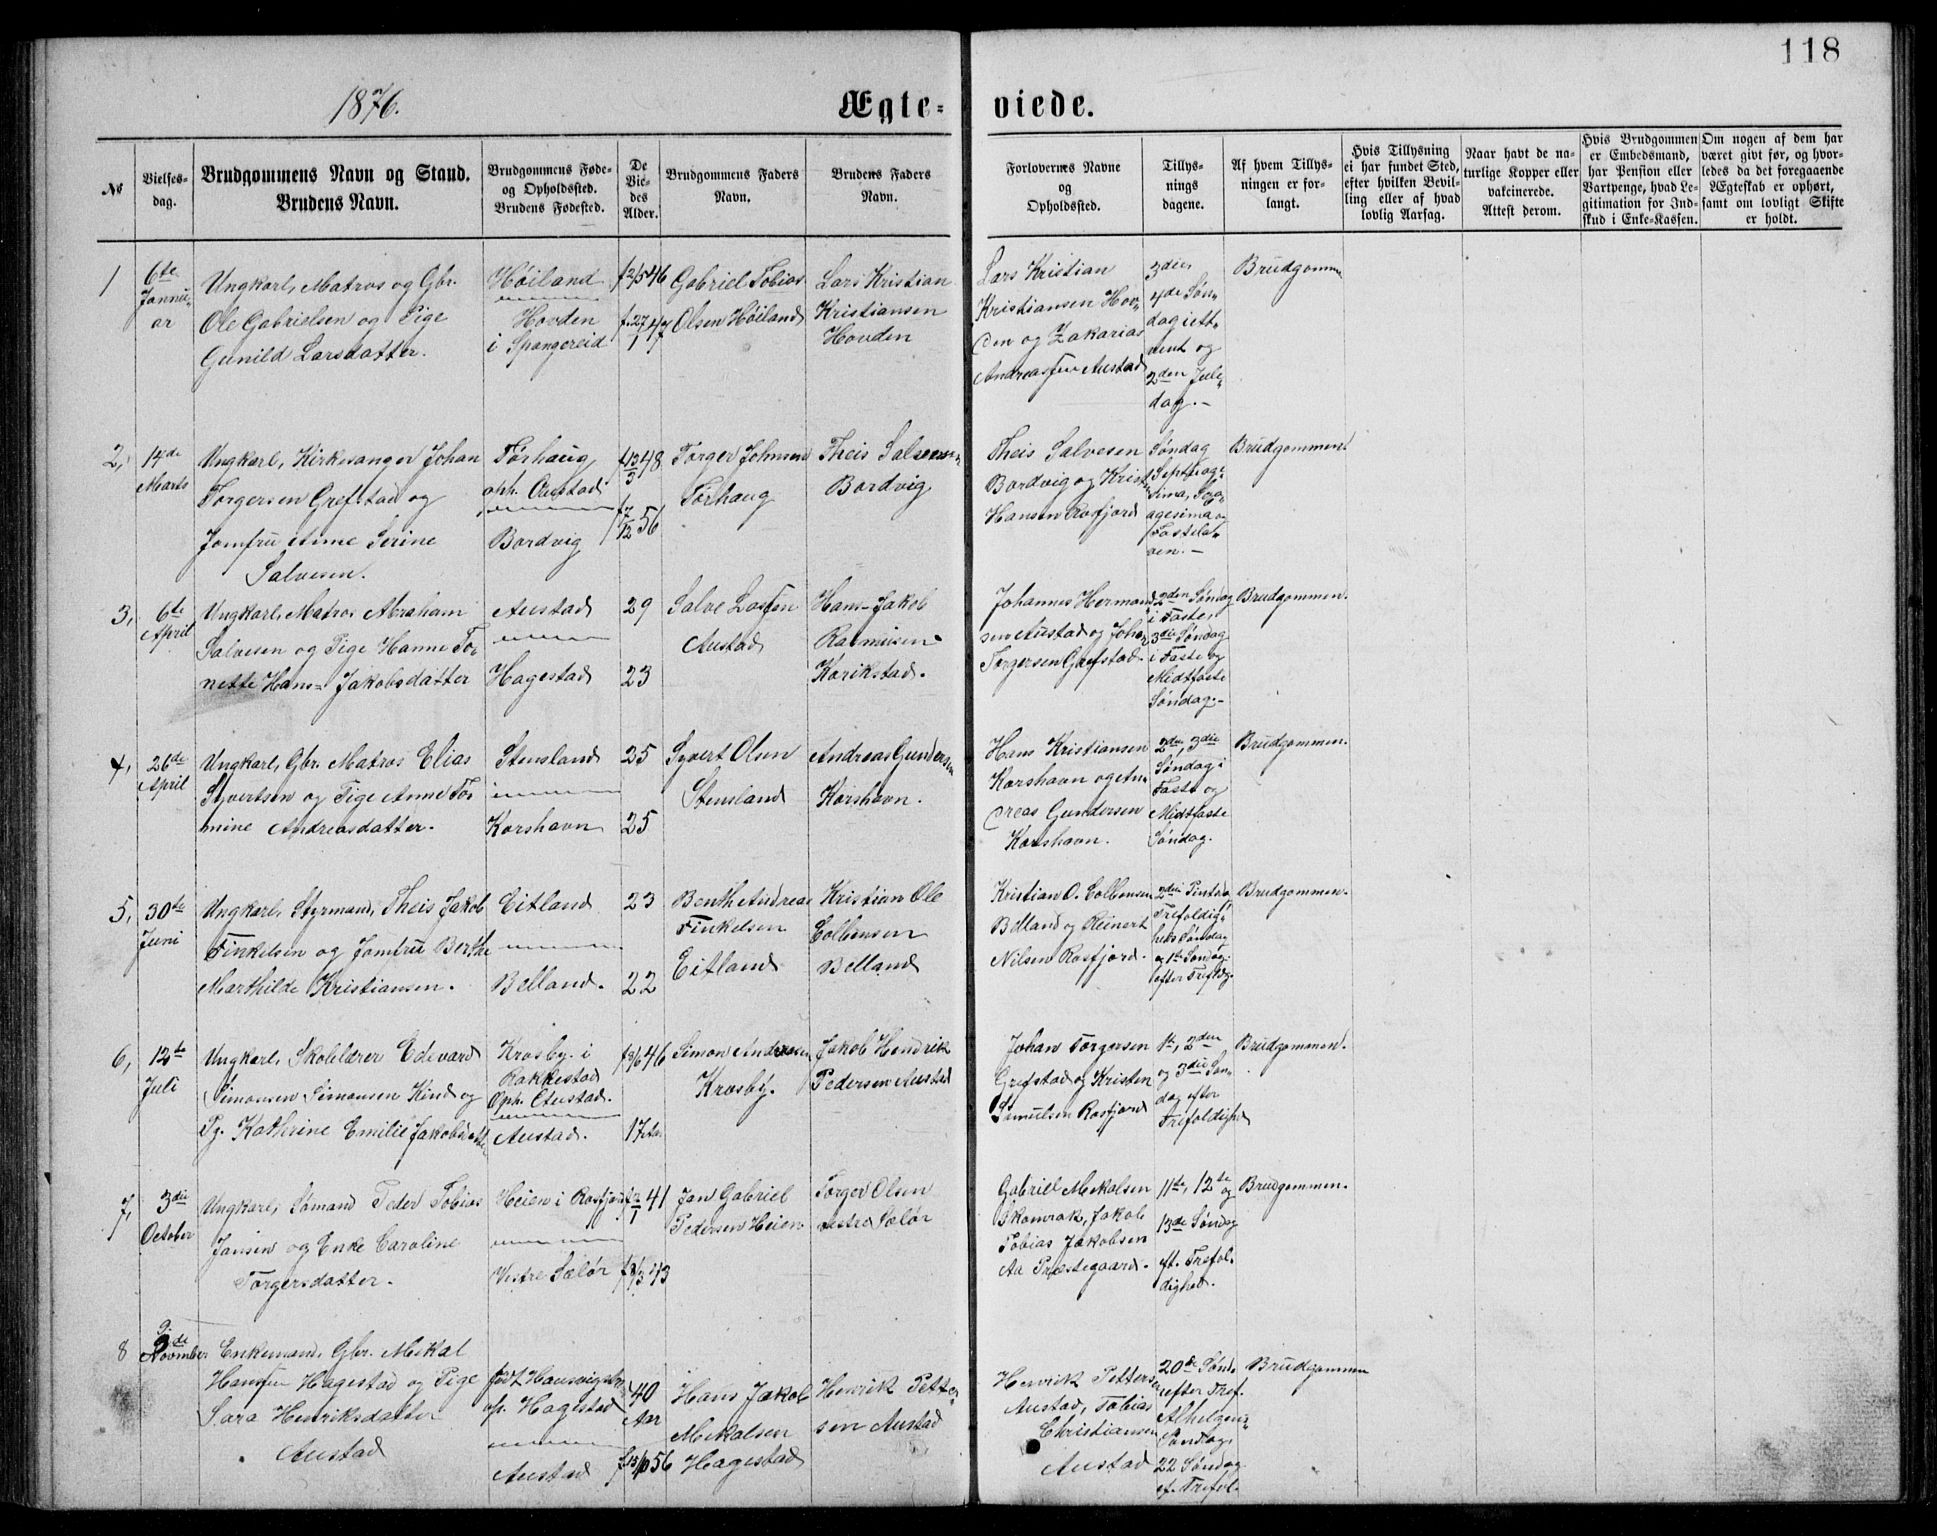 118
1876.
Ægte-
viede.
No
Vielses-
dag.
Brudgommens Navn og Stand.
Brudens Navn.
Brudgommens Føde-
og Opholdssted.
Brudens Fødested.
De
Vie-
des
Alder.
Brudgommens Faders
Navn.
Brudens Faders
Navn.
Forlovernes Navne
og
Opholdssted.
Tillys-
nings
dagene.
Af hvem Tillys-
ningen er for-
langt.
Hvis Tillysning
ei har fundet Sted,
efter hvilken Bevil-
ling eller af hvad
lovlig Aarsag.
Naar havt de na-
turlige Kopper eller
vakcinerede.
Attest derom.
Hvis Brudgommen
er Embedsmand,
har Pension eller
Vartpenge, hvad Le-
gitimation for Ind-
skud i Enke-Kassen.
Om nogen af dem har
været givt før, og hvor-
ledes da det foregaaende
Ægteskab er ophørt,
samt om lovligt Skifte
er holdt.
1
6te
Januu-
ar
Ungkarl, Matros og Gbr.
Ole Gabrielsen og Pige
Gunild Larsdatter.
Høiland
Hovden
i Spangereid
f. 2/5 46
f. 27/1 47
Gabriel Tobias
Olsen Høiland
Lars Kristian
Kristiansen
Hovden
Lars Kristian
Kristiansen Hov-
den og Zakarias
Andreassen Austad
3die,
4de Søn-
dag i Ad-
vent og
2den Jule-
dag.-
Brudgomm
2,
14de
Marts
Ungkarl, Kirkesanger Johan
Torgersen Grefstad og
Jomfru Anne Serine
Salvesen.
Tørhaug
oph. Austad
Bordvig
f. 13/3 48
f. 7/12 56
Torger Johnsen
Tørhaug
Theis Salvesen
Bordvig
Theis Salvesen
Bordvig og Krist.
Hansen Rosfjord
Søndag
Septuage-
sima, Sexa-
agesima og
Fastela-
ven.-
Brudgommen.
3,
6te
April
Ungkarl, Matros Abraham
Salvesen og Pige Hanne To-
nette Hans-Jakobsdatter
Austad
Hagestad
29
23
Salve Larsen
Austad
Hans-Jakob
Rasmusen
Korikstad.
Johannes Hermand-
sen Austad og Johan
Torgersen Grefstad.
2den Søndag
i Faste,
3die Søndag
i Faste og
Midtfaste
Søndag.-
Brudgommen.
4,
26de
April
Ungkarl, Gbr. Matros Elias
Syvertsen og Pige Anne To-
mine Andreasdatter.
Stensland
Korshavn
25
25
Syvert Olsen
Stensland
Andreas Gundersen
Korshavn.
Hans Kristiansen
Korshavn og An-
dreas Gundersen
Korshavn.
2den, 3die
Søndag i
Faste og
Midtfaste
Søndag.
Brudgommen.
5,
30te
Juni
Ungkarl, Styrmand, Theis Jakob
Finkelsen og Jomfru Berthe
Marthilde Kristiansen.
Eitland
Belland.
23
22
Benth Andreas
Finkelsen
Eitland
Kristian Ole
Colbensen
Belland
Kristian O. Colbensen
Belland og Reinert
Nilsen Rosfjord.
2den Pintsda
Trefoldig-
heds Søndag
og 1te Søndag
efter Trefdg.
Brudgommen.
6,
12te
Juli
Ungkarl, Skolelærer Edevard
Simonsen Simonsen Kind og
Pg. Kathrine Emilie Jakobsdatter
Krosby i
Rakkestad
Oph. Austad.
Austad.
f. 13/6 46
17 Aar
Simon Andersen
Krosby.
Jakob Hendrik
Pedersen Austad
Johan Torgersen
Grefstad og Kristen
Samulsen Rosfjord
1te, 2den
og 3die Søn-
dag efter
Trefoldighed
Brudgommen.
7,
3die
October
Ungkarl, Sømand Peder Tobias
Jansen og Enke Caroline
Torgersdatter.
Heien i Rosfjord
Vestre Sælør
41
43
Jan Gabriel
Pedersen Heien
Torger Olsen
vestre Sælør
Gabriel Mekalsen
Skomrak, Jakob
Tobias Jakobsen
Aa Præstegaard.
11te, 12te og
13de Søndag
eft. Trefol-
dighed.
Brudgommen.
8
9.
de
November
Enkemand, Gbr. Mekal
Hansen Hagestad og Pige
Sara Henriksdatter
Austad
op. Hagestad
Austad
40
Aar
56
Hans Jakob
Mekalsen
Hagestad
Henrik Petter-
sen Austad
Henrik Petterse
Austad, Tobias
Christiansen
Austad
20de Sønd.
efter Tref.
Alhelgens
Søndag,
22 Søndag
ef. Trefol.
Brudgommen